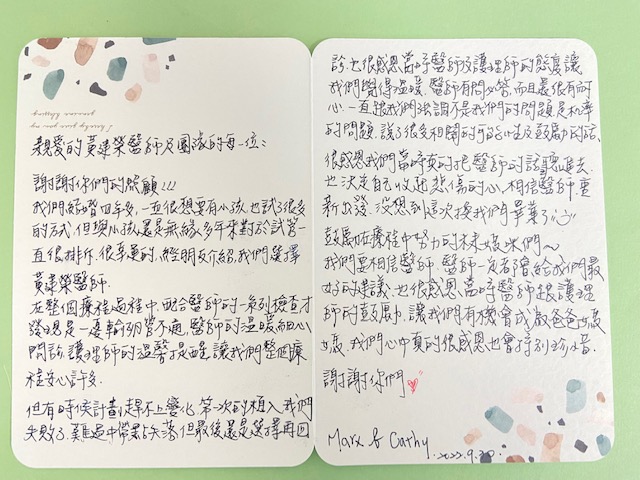 親愛的黃建榮醫師及團隊的每一位：
謝謝你們的照顧!!!
我們結婚四年多，一直很想要有小孩，也試了很多
的方式，但與小孩還是無緣，多年來對於試管一
直很排斥，很幸運的，經朋友介紹，我們選擇
黃建榮醫師．
在整個療程過程中，配合醫師的一系列檢查才
發現是一邊輸卵管不通，醫師的溫暖細心
問診，護理師的溫馨提醒，讓我們整個療
程安心許多．
但有時候計劃趕不上變化，第一次的植入我們
失敗了，難過中帶點失落，但最後還是選擇再回
診，也很感恩當時醫師及護理師的態度讓
我們覺得溫暖．醫師有問必答，而且還很有耐
心，一直跟我們強調不是我們的問題是机率
的問題，說了很多相關的可能性及鼓勵的話，
很感恩我們當時真的把醫師的話聽進去，
也決定自己收起悲傷的心，相信醫師，重
新出發，沒想到這次換我們畢業了
鼓勵在療程中努力的未來媽咪們~
我們要相信醫師．醫師一定會給我們最
好的建議，也很感恩當時醫師跟護理
師的鼓勵，讓我們有機會成為爸爸媽
媽，我們心中真的很感恩也會特別珍惜．
謝謝你們
Marx & Cathy．2022.9.20．